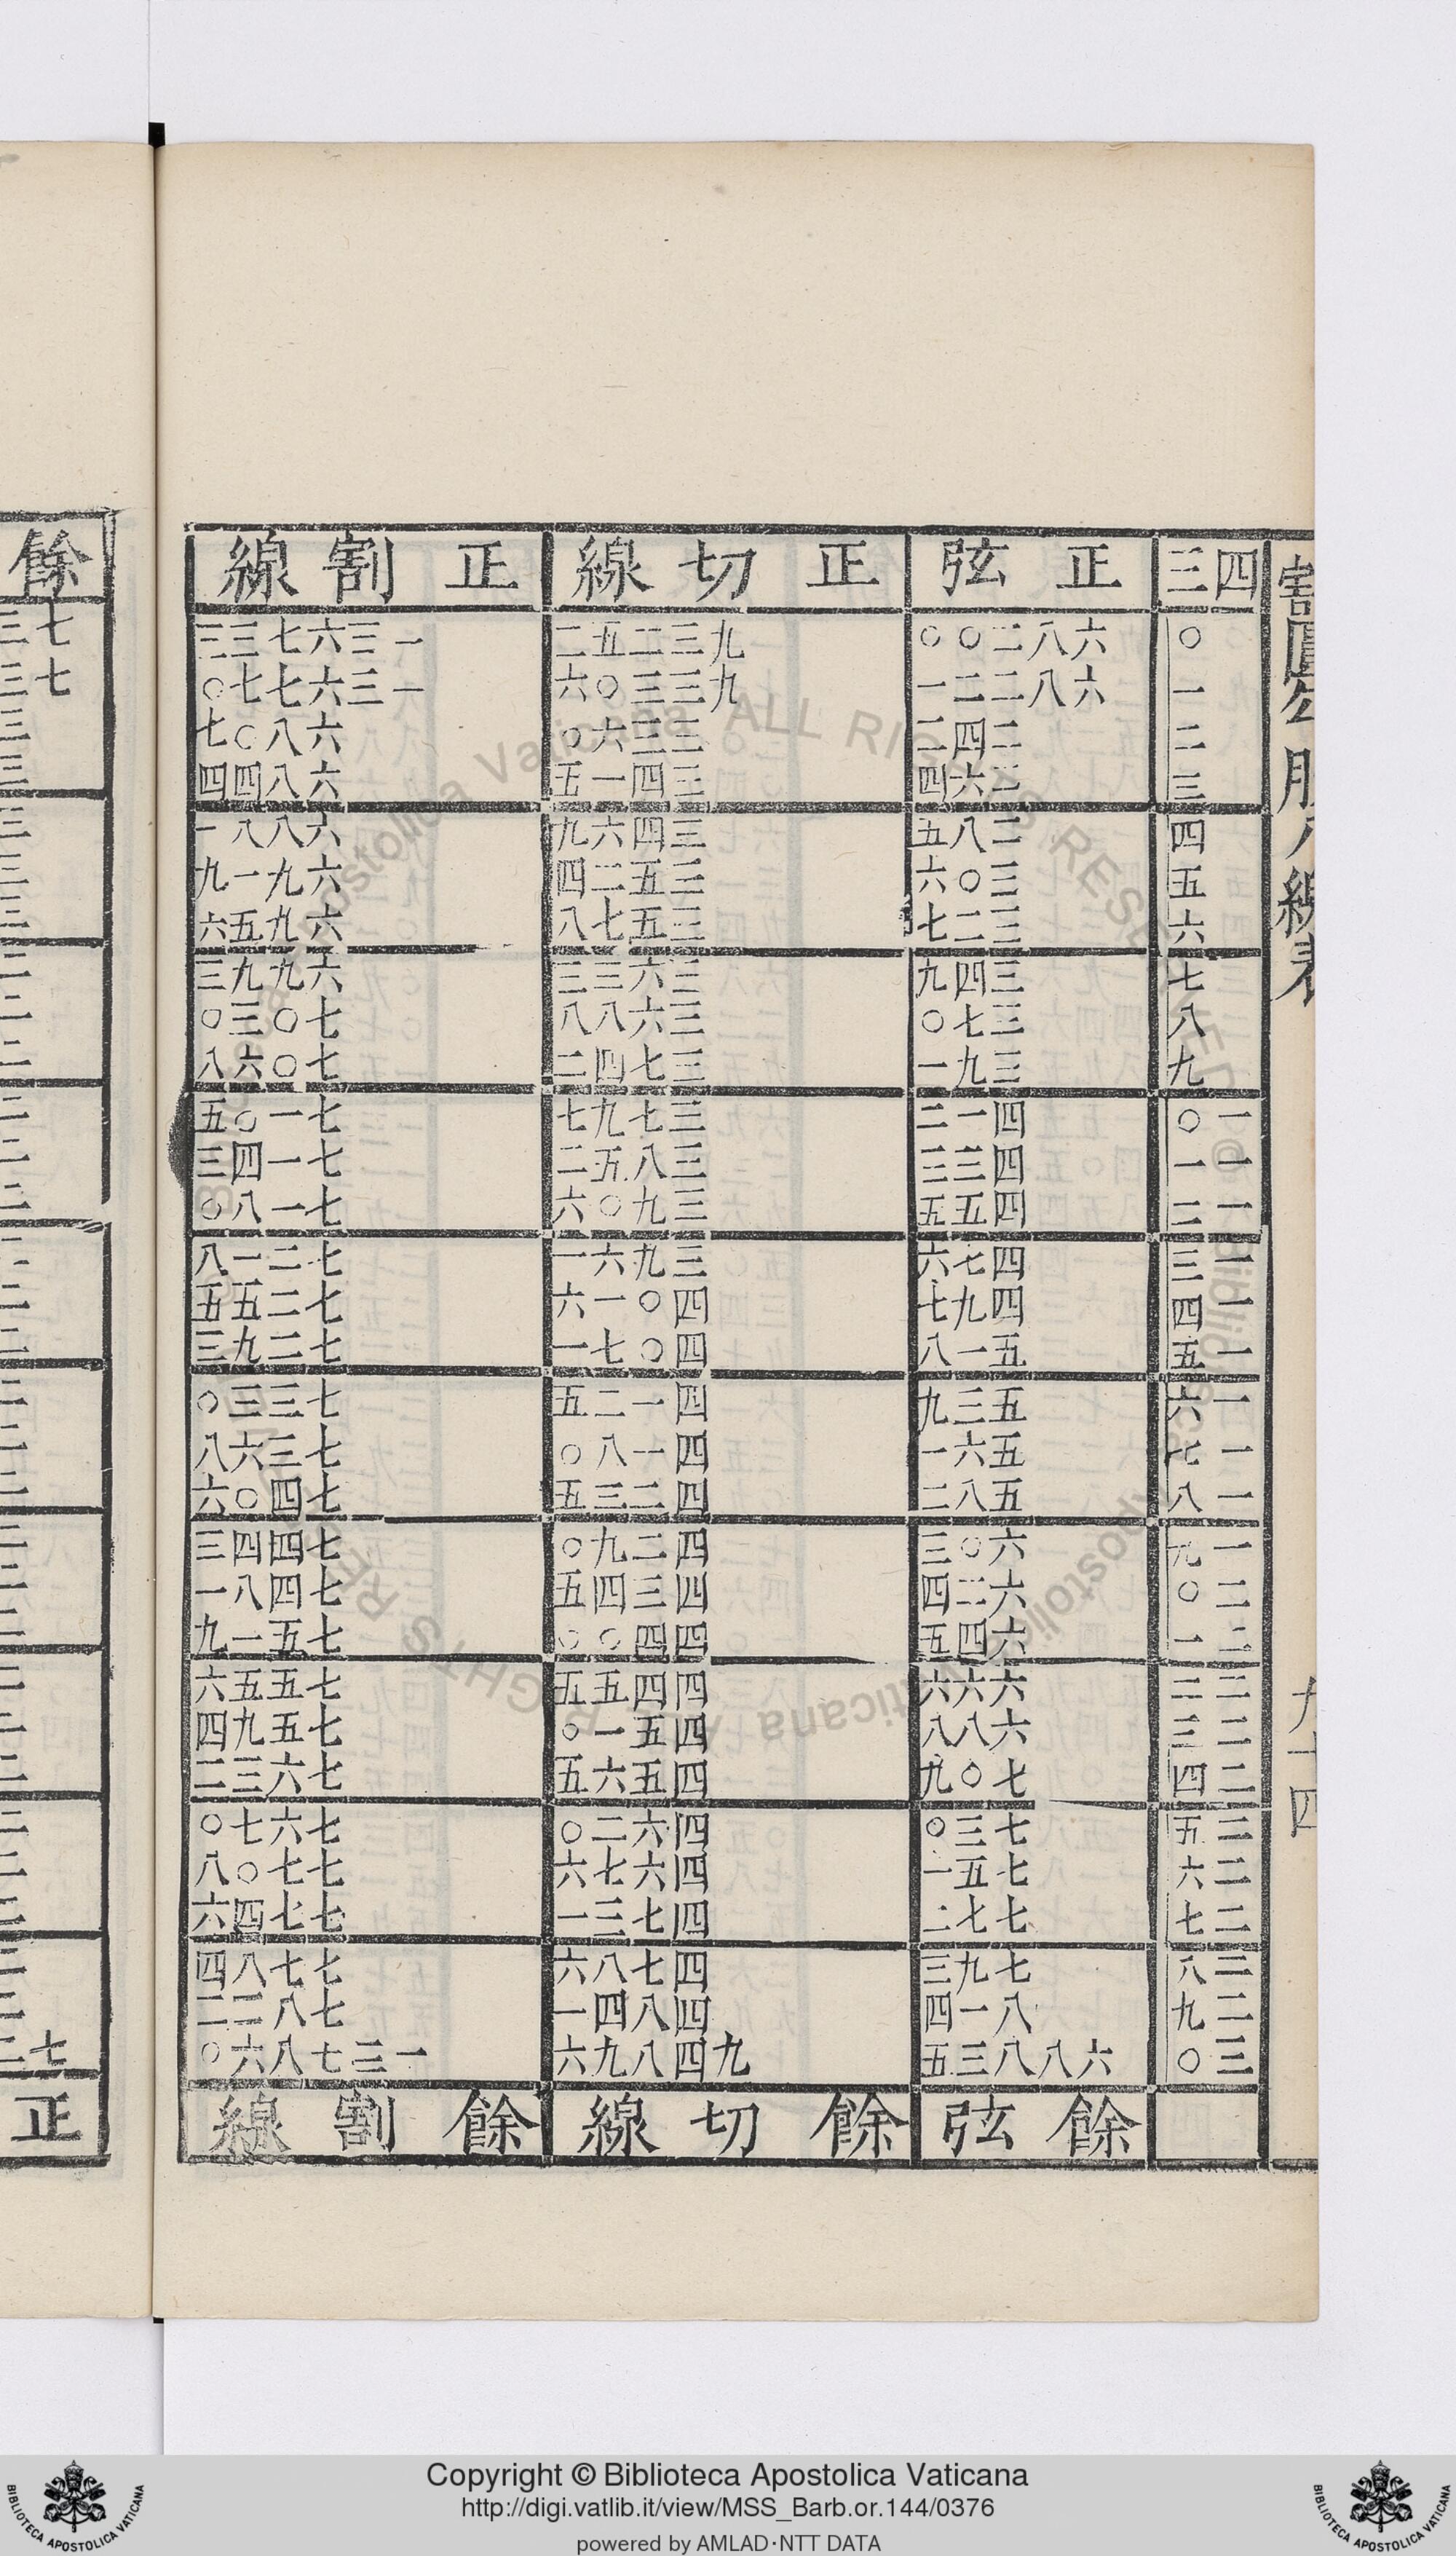 割圓勾股八線表 九十四
四三 正弦 正切線 正割線
○ 六八二○○ 九三二五二 一三六七三三
一 六八二二一 九三三○六 一三六七七○
二 二四二 三三六○ 六八○七
三 二六四 三四一五 六八四四
四 二八五 三四六九 六八八一
五 三○六 三五二四 六九一九
六 三二七 三五七八 六九五六
七 三四九 三六三三 六九九三
八 三七○ 三六八八 七○三○
九 三九一 三七四二 七○六八
一○ 四一二 三七九七 七一○五
一一 四三三 三八五二 七一四三
一二 四五五 三九○六 七一八○
一三 四七六 三九六一 七二一八
一四 四九七 四○一六 七二五五
一五 五一八 四○七一 七二九三
一六 五三九 四一二五 七三三○
一七 五六一 四一八○ 七三六八
一八 五八二 四二三五 七四○六
一九 六○三 四二九○ 七四四三
二○ 六二四 四三四五 七四八一
二一 六四五 四四○○ 七五一九
二二 六六六 四四五五 七五五六
二三 六八八 四五一○ 七五九四
二四 七○九 四五六五 七六三二
二五 七三○ 四六二○ 七六七○
二六 七五一 四六七六 七七○八
二七 七七二 四七三一 七七四六
二八 七九三 四七八六 七七八四
二九 八一四 四八四一 七八二二
三○ 六八八三五 九四八九六 一三七八六○
餘弦 餘切線 餘割線
餘
正
Copyright © Biblioteca Apostolica Vaticana
http://digi.vatlib.it/view/MSS_Barb.or.144/0376
powered by AMLAD·NTT DATA
BIBLIOTECA APOSTOLICA VATICANA
BIBLIOTECA APOSTOLICA VATICANA